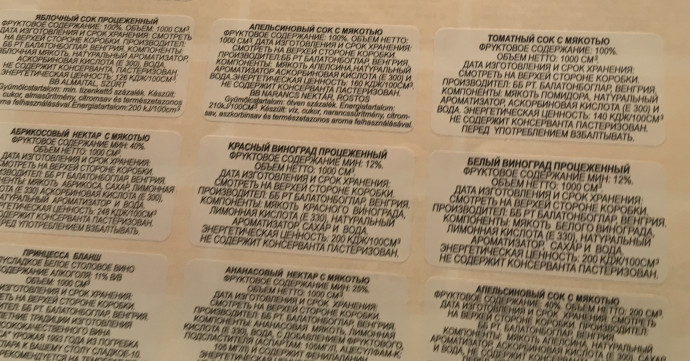 ЯБЛОЧНЫЙ СОК ПРОЦЕЖЕННЫЙ
ФРУКТОВОЕ СОДЕРЖАНИЕ: 100%. ОБЪЕМ: 1000 CM³
ДАТА ИЗГОТОВЛЕНИЯ И СРОК ХРАНЕНИЯ: СМОТРЕТЬ
НА ВЕРХЕЙ СТОРОНЕ КОРОБКИ. ПРОИЗВОДИТЕЛ:
ББ РТ БАЛАТОНБОГЛАР, ВЕНГРИЯ. КОМПОНЕНТЫ:
ЯБЛОЧНАЯ МЯКОТЬ, НАТУРАЛЬНЫЙ АРОМАТИЗАТОР,
АСКОРБИНОВАЯ КИСЛОТА (E 300), ВОДА.
НЕ СОДЕРЖИТ КОНСЕРВАНТА ПАСТЕРИЗОВАН.
ЭНЕРГЕТИЧЕСКАЯ ЦЕННОСТЬ:
BB ALMAITAL, SZŰRT
Gyümölcstartalom: min. tizenkettő százalék. Készült:
cukor, almasűrítmény, citromsav és természetazonos
aroma felhasználásával. Energiatartalom: 200 kJ/100cm³
АПЕЛЬСИНОВЫЙ СОК С МЯКОТЬЮ
ФРУКТОВОЕ СОДЕРЖАНИЕ: 100%. ОБЪЕМ НЕТТО:
1000 CM³. ДАТА ИЗГОТОВЛЕНИЯ И СРОК ХРАНЕНИЯ:
СМОТРЕТЬ НА ВЕРХЕЙ СТОРОНЕ КОРОБКИ.
ПРОИЗВОДИТЕЛ: ББ РТ БАЛАТОНБОГЛАР, ВЕНГРИЯ.
КОМПОНЕНТЫ: МЯКОТЬ АПЕЛСИНА, НАТУРАЛЬНЫЙ
АРОМАТИЗАТОР, АСКОРБИНОВАЯ КИСЛОТА (E 300) И
ВОДА. ЭНЕРГЕТИЧЕСКАЯ ЦЕННОСТЬ: 180 КДЖ/100CM³
НЕ СОДЕРЖИТ КОНСЕРВАНТА ПАСТЕРИЗОВАН.
BB NARANCS NEKTÁR, ROSTOS
Gyümölcstartalom: ötven százalék. Energiatartalom:
210kJ/100cm³. Készült: víz, cukor, narancssűrítmény, citrom-
sav, aszkorbinsav és természetazonos aroma felhasználásával.
ТОМАТНЫЙ СОК С МЯКОТЬЮ
ФРУКТОВОЕ СОДЕРЖАНИЕ: 100%.
ОБЪЕМ НЕТТО: 1000 CM³
ДАТА ИЗГОТОВЛЕНИЯ И СРОК ХРАНЕНИЯ:
СМОТРЕТЬ НА ВЕРХЕЙ СТОРОНЕ КОРОБКИ.
ПРОИЗВОДИТЕЛ: ББ РТ БАЛАТОНБОГЛАР, ВЕНГРИЯ.
КОМПОНЕНТЫ: МЯКОТЬ ПОМИДОРА, НАТУРАЛЬНЫЙ
АРОМАТИЗАТОР, АСКОРБИНОВАЯ КИСЛОТА (E 300) И
ВОДА. ЭНЕРГЕТИЧЕСКАЯ ЦЕННОСТЬ: 140 КДЖ/100CM³
НЕ СОДЕРЖИТ КОНСЕРВАНТА ПАСТЕРИЗОВАН.
ПЕРЕД УПОТРЕБЛЕНИЕМ ВЗБАЛТЫВАТЬ.
АБРИКОСОВЫЙ НЕКТАР С МЯКОТЬЮ
ФРУКТОВОЕ СОДЕРЖАНИЕ МИН: 40%.
ОБЪЕМ НЕТТО: 1000 CM³
ДАТА ИЗГОТОВЛЕНИЯ И СРОК ХРАНЕНИЯ:
СМОТРЕТЬ НА ВЕРХЕЙ СТОРОНЕ КОРОБКИ.
ББ РТ БАЛАТОНБОГЛАР, ВЕНГРИЯ.
МЯКОТЬ АБРИКОСА, САХАР, ЛИМОННАЯ
АСКОРБИНОВАЯ КИСЛОТА (E 300),
НАТУРАЛЬНЫЙ АРОМАТИЗАТОР И ВОДА.
ЦЕННОСТЬ: 248 КДЖ/100CM³
СОДЕРЖИТ КОНСЕРВАНТА ПАСТЕРИЗОВАН.
ПЕРЕД УПОТРЕБЛЕНИЕМ ВЗБАЛТЫВАТЬ.
КРАСНЫЙ ВИНОГРАД ПРОЦЕЖЕННЫЙ
ФРУКТОВОЕ СОДЕРЖАНИЕ МИН: 12%.
ОБЪЕМ НЕТТО: 1000 CM³
ДАТА ИЗГОТОВЛЕНИЯ И СРОК ХРАНЕНИЯ:
СМОТРЕТЬ НА ВЕРХЕЙ СТОРОНЕ КОРОБКИ.
ПРОИЗВОДИТЕЛ: ББ РТ БАЛАТОНБОГЛАР, ВЕНГРИЯ.
КОМПОНЕНТЫ: МЯКОТЬ КРАСНОГО ВИНОГРАДА,
ЛИМОННАЯ КИСЛОТА (E 330), НАТУРАЛЬНЫЙ
АРОМАТИЗАТОР, САХАР И ВОДА.
ЭНЕРГЕТИЧЕСКАЯ ЦЕННОСТЬ: 200 КДЖ/100CM³
НЕ СОДЕРЖИТ КОНСЕРВАНТА ПАСТЕРИЗОВАН.
БЕЛЫЙ ВИНОГРАД ПРОЦЕЖЕННЫЙ
ФРУКТОВОЕ СОДЕРЖАНИЕ МИН: 12%.
ОБЪЕМ НЕТТО: 1000 CM³
ДАТА ИЗГОТОВЛЕНИЯ И СРОК ХРАНЕНИЯ:
СМОТРЕТЬ НА ВЕРХЕЙ СТОРОНЕ КОРОБКИ.
ПРОИЗВОДИТЕЛ: ББ РТ БАЛАТОНБОГЛАР, ВЕНГРИЯ.
КОМПОНЕНТЫ: МЯКОТЬ БЕЛОГО ВИНОГРАДА,
ЛИМОННАЯ КИСЛОТА (E 330), НАТУРАЛЬНЫЙ
АРОМАТИЗАТОР, САХАР И ВОДА.
ЭНЕРГЕТИЧЕСКАЯ ЦЕННОСТЬ: 200 КДЖ/100CM³
НЕ СОДЕРЖИТ КОНСЕРВАНТА ПАСТЕРИЗОВАН.
ПРИНЦЕССА БЛАНШ
БЕЛОЕ СТОЛОВОЕ ВИНО
СОДЕРЖАНИЕ АЛКОГОЛЯ, 11% В/В
ОБЪЕМ: 1000 CM³
ИЗГОТОВЛЕНИЯ И СРОК ХРАНЕНИЯ:
НА ВЕРХЕЙ СТОРОНЕ КОРОБКИ.
ББ РТ БАЛАТОНБОГЛАР, ВЕНГРИЯ.
ТРАДИЦИИ ИЗГОТОВЛЕНИЯ
ВЫСОКОКАЧЕСТВЕННОГО ВИНА
УРОЖАЯ 1993 ГОДА ИЗ ПОГРЕБКА
К ВАШЕМУ СТОЛУ СЛАДКОЕ-10
РЕКОМЕНДУЕТСЯ НА
АНАНАСОВЫЙ НЕКТАР С МЯКОТЬЮ
ФРУКТОВОЕ СОДЕРЖАНИЕ МИН: 25%.
ОБЪЕМ НЕТТО: 1000 CM³
ДАТА ИЗГОТОВЛЕНИЯ И СРОК ХРАНЕНИЯ:
СМОТРЕТЬ НА ВЕРХЕЙ СТОРОНЕ КОРОБКИ.
ПРОИЗВОДИТЕЛ: ББ РТ БАЛАТОНБОГЛАР, ВЕНГРИЯ.
КОМПОНЕНТЫ: АНАНАСОВАЯ МЯКОТЬ, ЛИМОННАЯ
КИСЛОТА (E 330), ВОДА, С ДОБАВЛЕНИЕМ ФРУКТОВОГО,
ПОДСЛАСТИТЕЛЯ (АСПАРТАМ 105МГ/Л, АЦЕСУЛФАМ-К:
СОДЕРЖИТ ФЕНИЛАЛАНИН.
АПЕЛЬСИНОВЫЙ СОК С МЯКОТЬЮ
ФРУКТОВОЕ СОДЕРЖАНИЕ: 40% ОБЪЕМ НЕТТО: 200 CM³.
ДАТА ИЗГОТОВЛЕНИЯ И СРОК ХРАНЕНИЯ:
СМОТРЕТЬ НА ВЕРХЕЙ СТОРОНЕ КОРОБКИ.
ББ РТ БАЛАТОНБОГЛАР, ВЕНГРИЯ.
КОМПОНЕНТЫ: МЯКОТЬ АПЕЛСИНА, НАТУРАЛЬНЫЙ